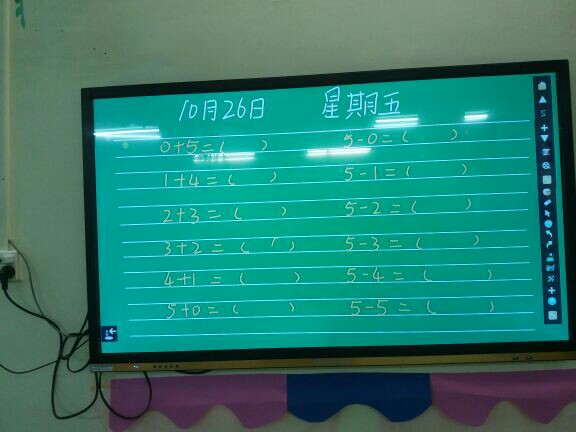 10月26日 星期五
0+5=( ) 5-0=( )
1+4=( ) 5-1=( )
2+3=( ) 5-2=( )
3+2=( ) 5-3=( )
4+1=( ) 5-4=( )
5+0=( ) 5-5=( )